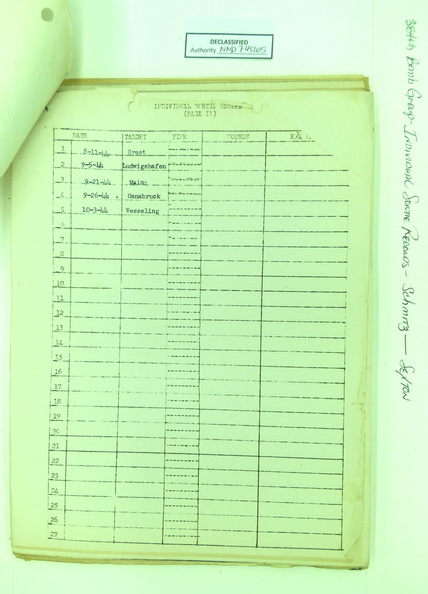 DECLASSIFIED
Authority NND 745005
384th Bomb Group - Individual Sortie Records - Schmitz — Sexton
INDIVIDUAL SORTIE
(PAGE II)
DATE TARGET TIME ROUNDS E/A
1 8-11-44 Brest
2 9-5-44 Ludwigshafen
3 9-21-44 Mainz
4 9-26-44 Osnabruck
5 10-3-44 Wesseling
6
7
8
9
10
11
12
13
14
15
16
17
18
19
20
21
22
23
24
25
26
27